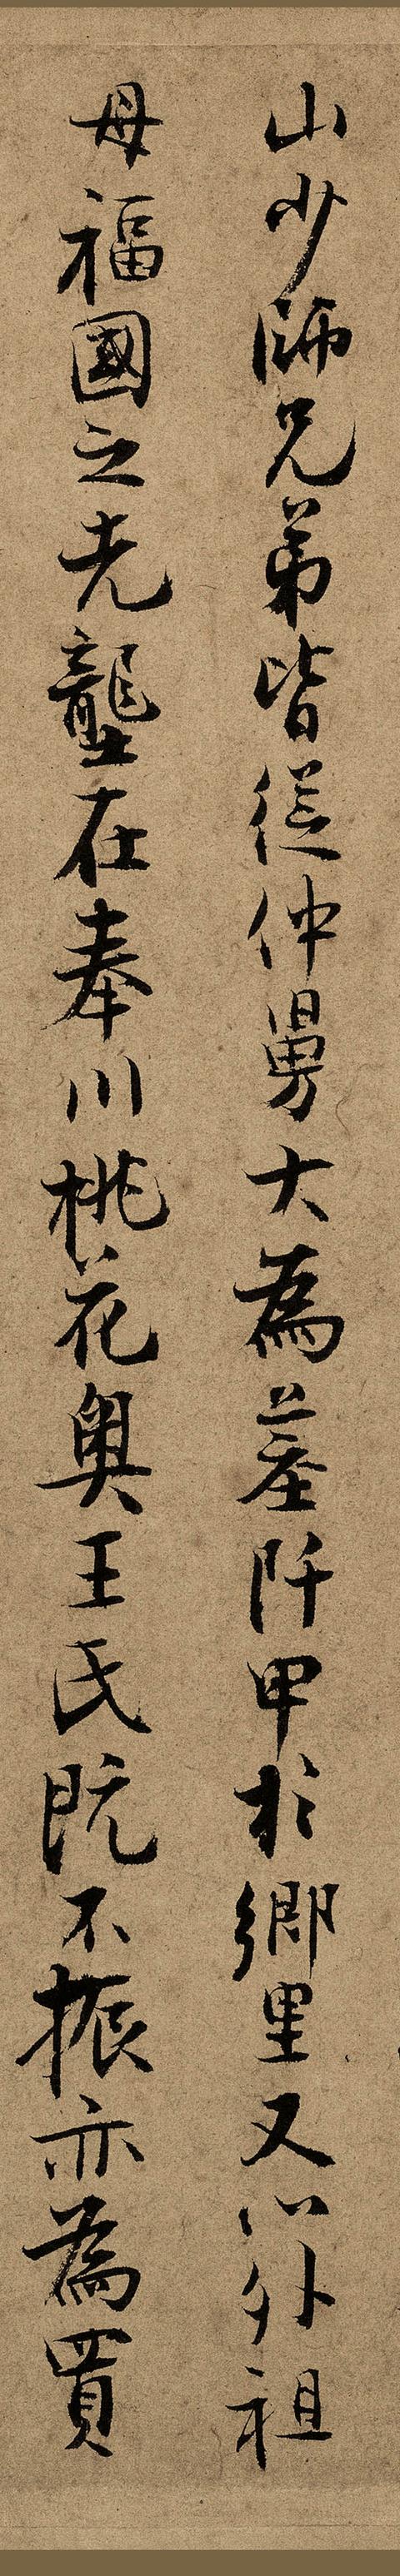 山少師兄弟皆從仲舅大為墓阡甲於鄉里又以外祖
母福國之先壟在奉川桃花奧王氏既不振亦為買